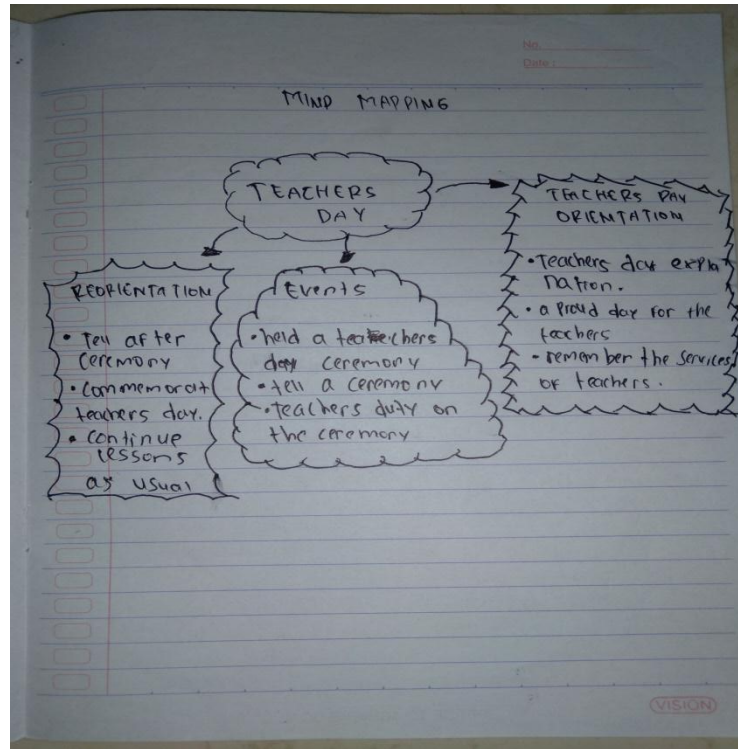 No.
Date :
MIND MAPPING
TEACHERS
DAY
TEACHERS DAY
ORIENTATION
• Teachers day expla
nation.
• a proud day for the
teachers
- remember the services
of teachers.
REORIENTATION
• Tell after
ceremony
• commemorat
teachers day.
• continue
lessons
as usual
Events
• held a teachers
day ceremony
• tell a ceremony
• teachers duty on
the ceremony
VISION